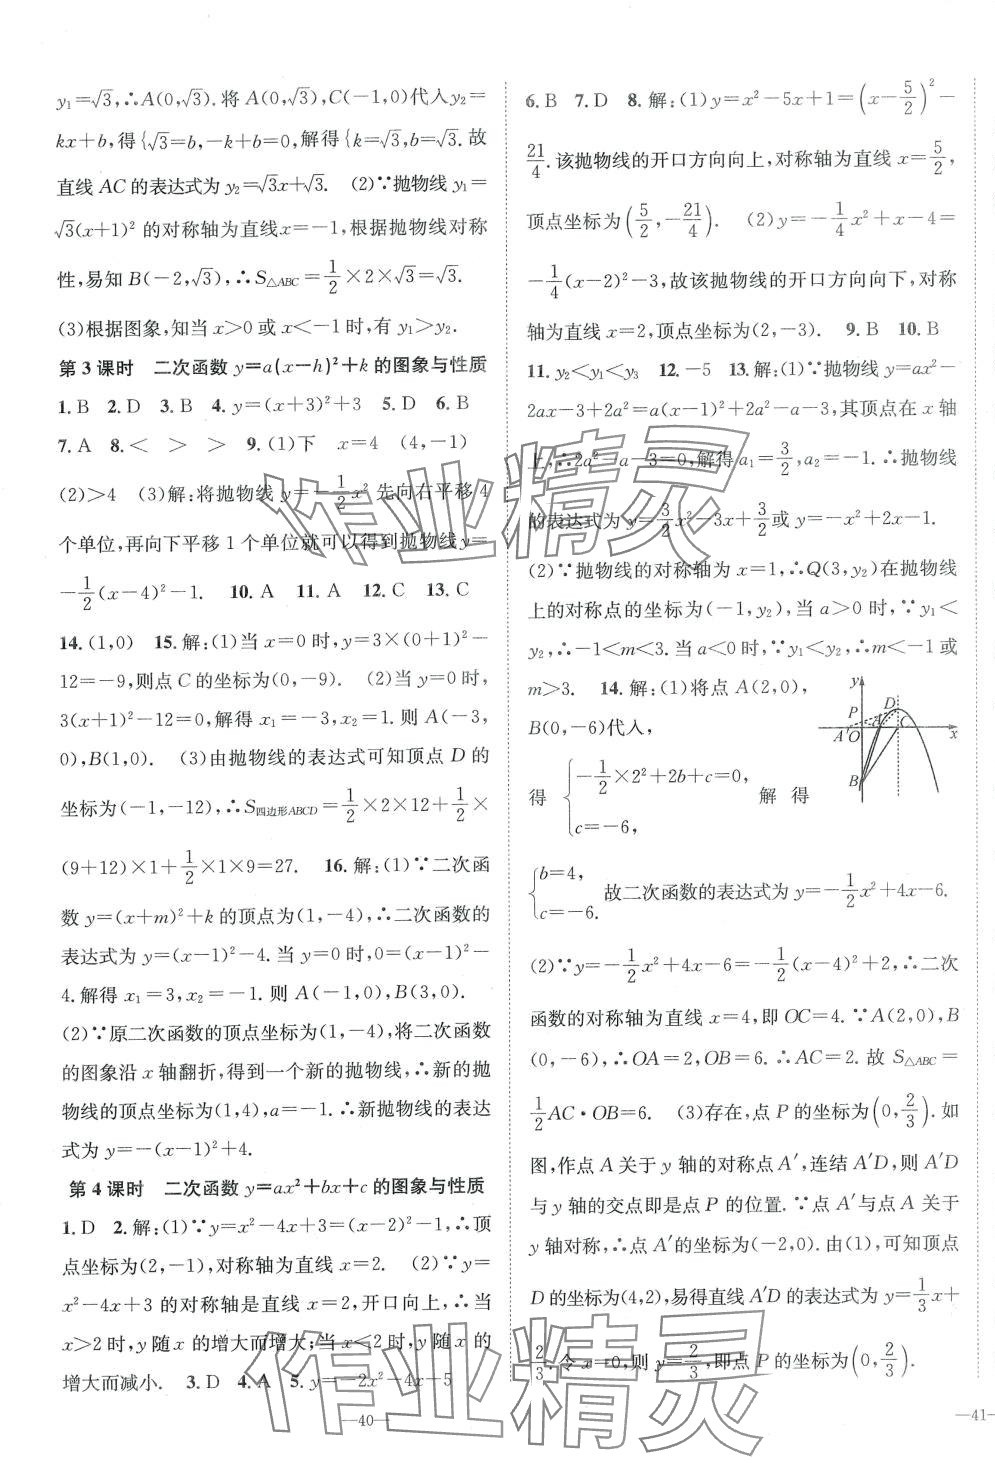 y₁=√3,∴A(0,√3).将 A(0,√3),C(-1,0)代入y₂=
kx+b,得{√3=b,-k+b=0,解得{k=√3,b=√3.故
直线 AC 的表达式为 y₂=√3x+√3. (2)∵抛物线 y₁=
√3(x+1)² 的对称轴为直线x=-1,根据抛物线对称
性,易知 B(-2,√3),∴S△ABC=1/2×2×√3=√3.
(3)根据图象,知当 x>0 或 x<-1 时,有 y₁>y₂.
第 3 课时 二次函数 y=a(x-h)²+k 的图象与性质
1. B 2. D 3. B 4. y=(x+3)²+3 5. D 6. B
7. A 8. < > > 9. (1)下 x=4 (4,-1)
(2)>4 (3)解:将抛物线 y=-1/2x² 先向右平移 4
个单位,再向下平移 1 个单位就可以得到抛物线 y=
-1/2(x-4)²-1. 10. A 11. A 12. C 13. C
14. (1,0) 15. 解:(1)当 x=0 时,y=3×(0+1)²-
12=-9,则点 C 的坐标为(0,-9). (2)当 y=0 时,
3(x+1)²-12=0,解得 x₁=-3,x₂=1.则 A(-3,
0),B(1,0). (3)由抛物线的表达式可知顶点 D 的
坐标为(-1,-12),∴S四边形ABCD=1/2×2×12+1/2×
(9+12)×1+1/2×1×9=27. 16. 解:(1)∵二次函
数 y=(x+m)²+k 的顶点为(1,-4),∴二次函数的
表达式为 y=(x-1)²-4.当 y=0 时,0=(x-1)²-
4.解得 x₁=3,x₂=-1.则 A(-1,0),B(3,0).
(2)∵原二次函数的顶点坐标为(1,-4),将二次函数
的图象沿 x 轴翻折,得到一个新的抛物线,∴新的抛
物线的顶点坐标为(1,4),a=-1.∴新抛物线的表达
式为 y=-(x-1)²+4.
第 4 课时 二次函数 y=ax²+bx+c 的图象与性质
1. D 2. 解:(1)∵y=x²-4x+3=(x-2)²-1,∴顶
点坐标为(2,-1),对称轴为直线 x=2. (2)∵y=
x²-4x+3 的对称轴是直线 x=2,开口向上,∴当
x>2 时,y 随 x 的增大而增大;当 x<2 时,y 随 x 的
增大而减小. 3. D 4. A 5. y=-2x²-4x-5
—40—
6. B 7. D 8. 解:(1)y=x²-5x+1=(x-5/2)²-
21/4.该抛物线的开口方向向上,对称轴为直线 x=5/2,
顶点坐标为(5/2,-21/4). (2)y=-1/4x²+x-4=
-1/4(x-2)²-3,故该抛物线的开口方向向下,对称
轴为直线 x=2,顶点坐标为(2,-3). 9. B 10. B
11. y₂<y₁<y₃ 12. -5 13. 解:(1)∵抛物线 y=ax²-
2ax-3+2a²=a(x-1)²+2a²-a-3,其顶点在 x 轴
上,∴2a²-a-3=0,解得 a₁=3/2,a₂=-1.∴抛物线
的表达式为 y=3/2x²-3x+3/2或 y=-x²+2x-1.
(2)∵抛物线的对称轴为 x=1,∴Q(3,y₂)在抛物线
上的对称点的坐标为(-1,y₂),当 a>0 时,∵y₁<
y₂,∴-1<m<3.当 a<0 时,∵y₁<y₂,∴m<-1 或
m>3. 14. 解:(1)将点 A(2,0),
B(0,-6)代入,
y D P A′ O A C x B
得 {-1/2×2²+2b+c=0, c=-6, 解 得
{b=4, c=-6. 故二次函数的表达式为 y=-1/2x²+4x-6.
(2)∵y=-1/2x²+4x-6=-1/2(x-4)²+2,∴二次
函数的对称轴为直线 x=4,即 OC=4.∵A(2,0),B
(0,-6),∴OA=2,OB=6.∴AC=2.故 S△ABC=
1/2AC·OB=6. (3)存在,点 P 的坐标为(0,2/3).如
图,作点 A 关于 y 轴的对称点 A′,连结 A′D,则 A′D
与 y 轴的交点即是点 P 的位置.∵点 A′与点 A 关于
y 轴对称,∴点 A′的坐标为(-2,0).由(1),可知顶点
D 的坐标为(4,2),易得直线 A′D 的表达式为 y=1/3x+
2/3.令 x=0,则 y=2/3,即点 P 的坐标为(0,2/3).
—41—
作业精灵
作业精灵